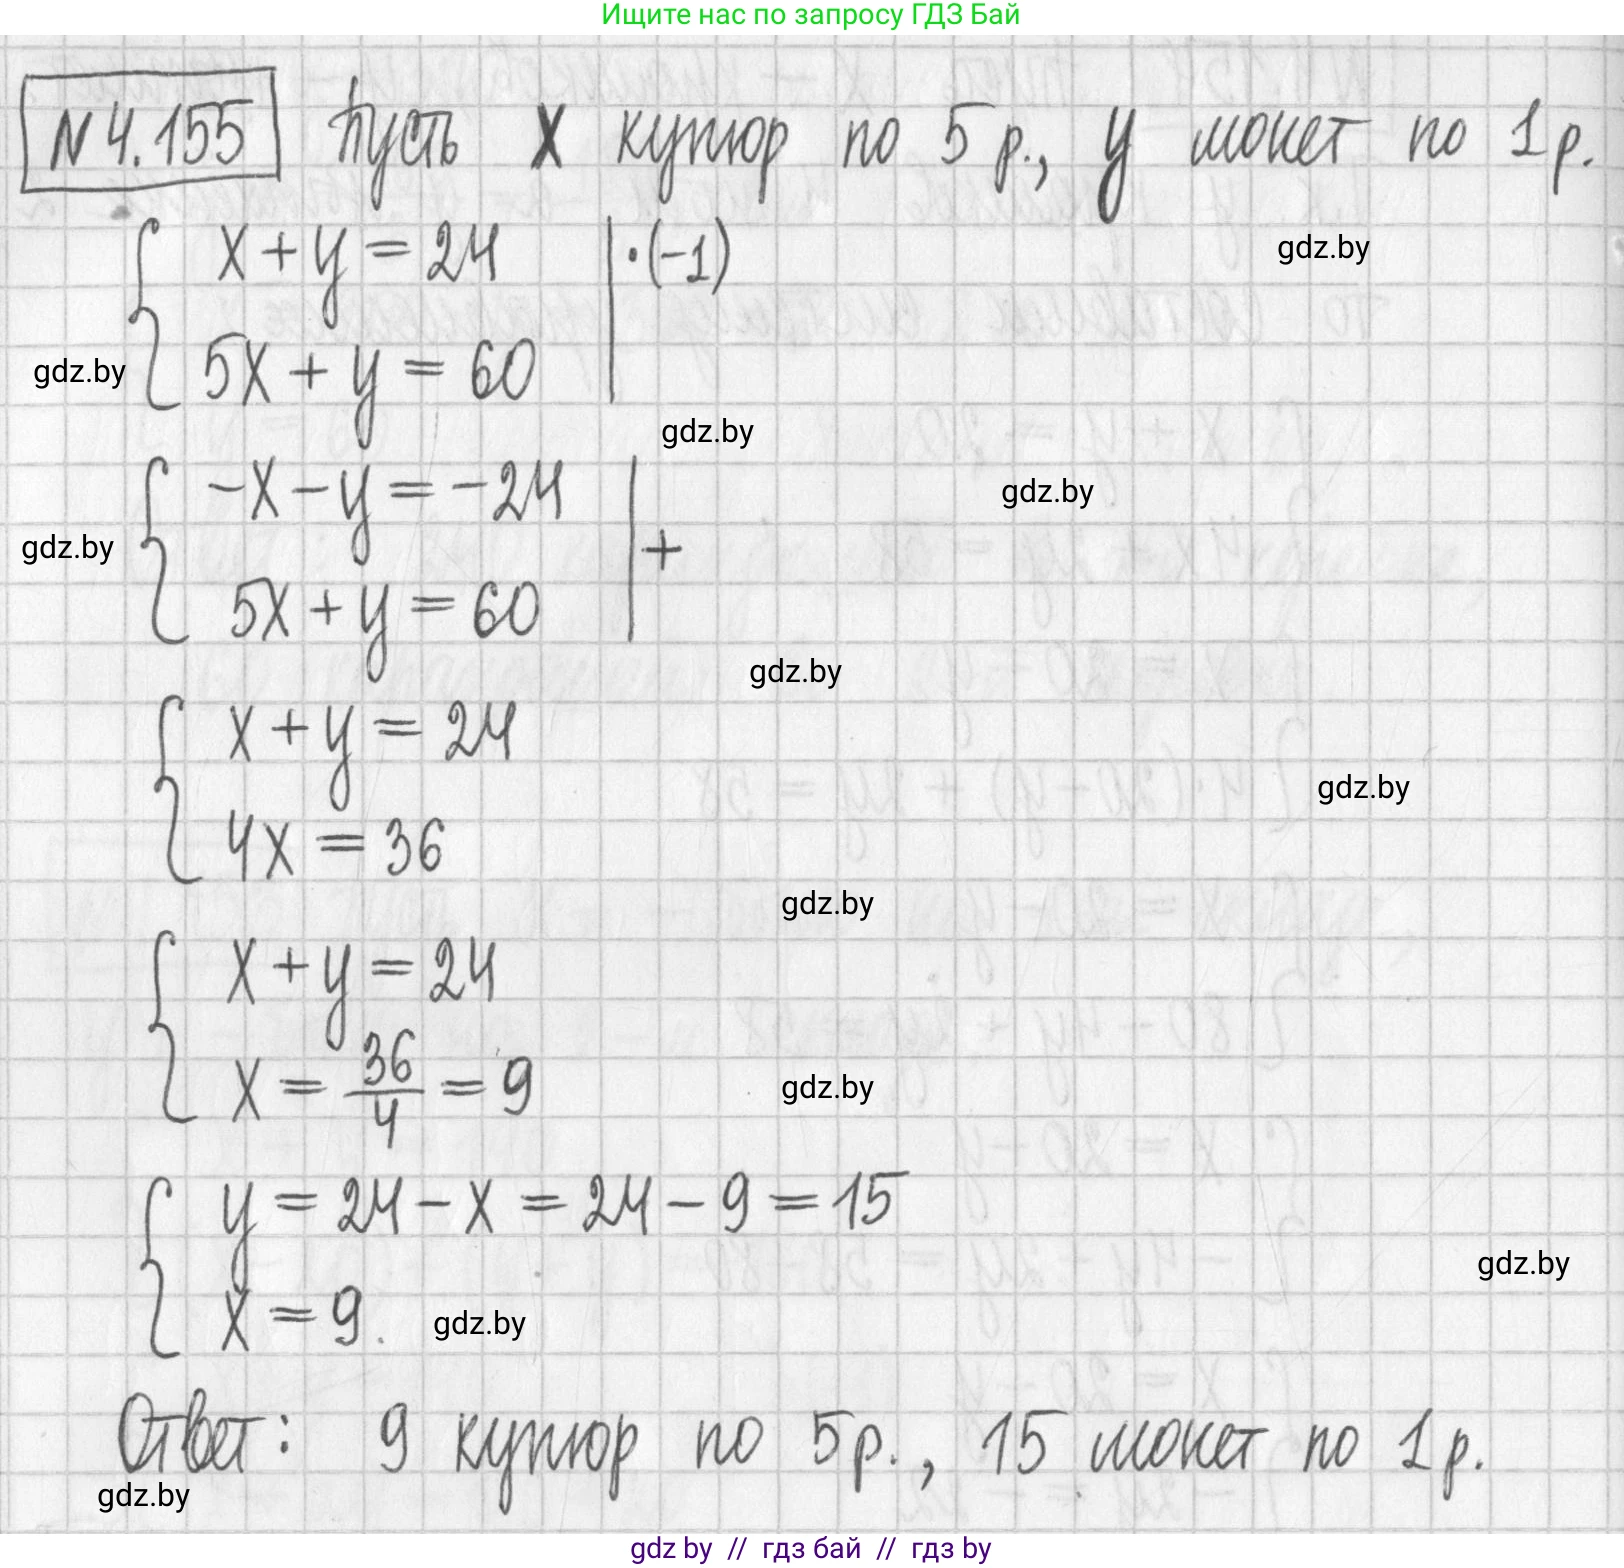 Ищите нас по запросу ГДЗ Бай
N 4.155 Пусть x купюр по 5 р., y монет по 1 р.
x + y = 24 | · (-1)
gdz.by
5x + y = 60
gdz.by
gdz.by
-x - y = -24
gdz.by
gdz.by
+
5x + y = 60
gdz.by
x + y = 24
gdz.by
4x = 36
gdz.by
x + y = 24
x = 36/4 = 9
gdz.by
y = 24 - x = 24 - 9 = 15
gdz.by
x = 9.
gdz.by
Ответ: 9 купюр по 5 р., 15 монет по 1 р.
gdz.by
gdz by // гдз бай // гдз by